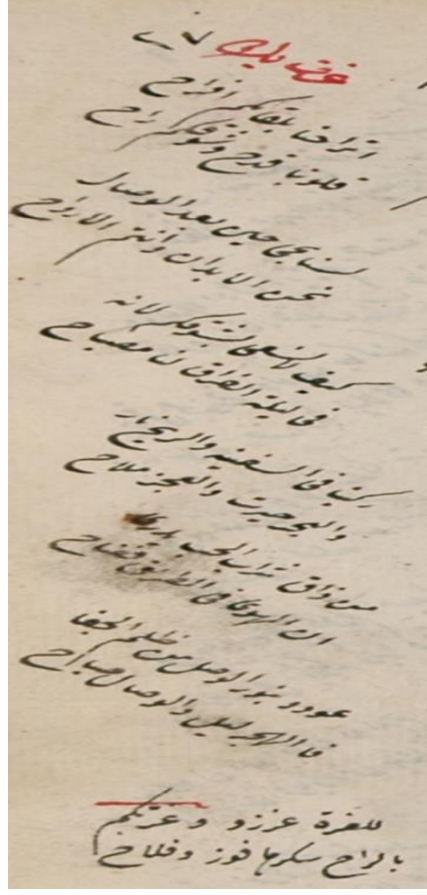 اتراحنا بلقائكم افراح
قلوبنا قدح وشوقكم راح
لسنا بحاجين بعد الوصال
نحن الابدان وانتم الارواح
كيف لا نسعى لشوقكم لانه
في ليلة الفراق لنا مصباح
ركبنا في السفينه والريح نار
والبحر حيرت والعجز ملاح
من ذاق شراب الحب
ان الهوى في الطريق فضاح
عودوا بنور الوصل من ظلم الجفا
فالهجر ليل والوصال صباح
للعزة عززو وعزتكم
بالراح سكرها فوز وفلاح